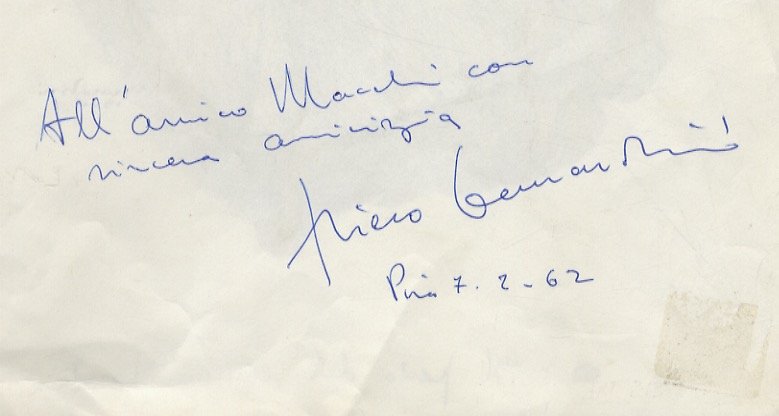 All'amico Macchi con
sincera amicizia
Piero Bernardini
Pisa 7.2-62